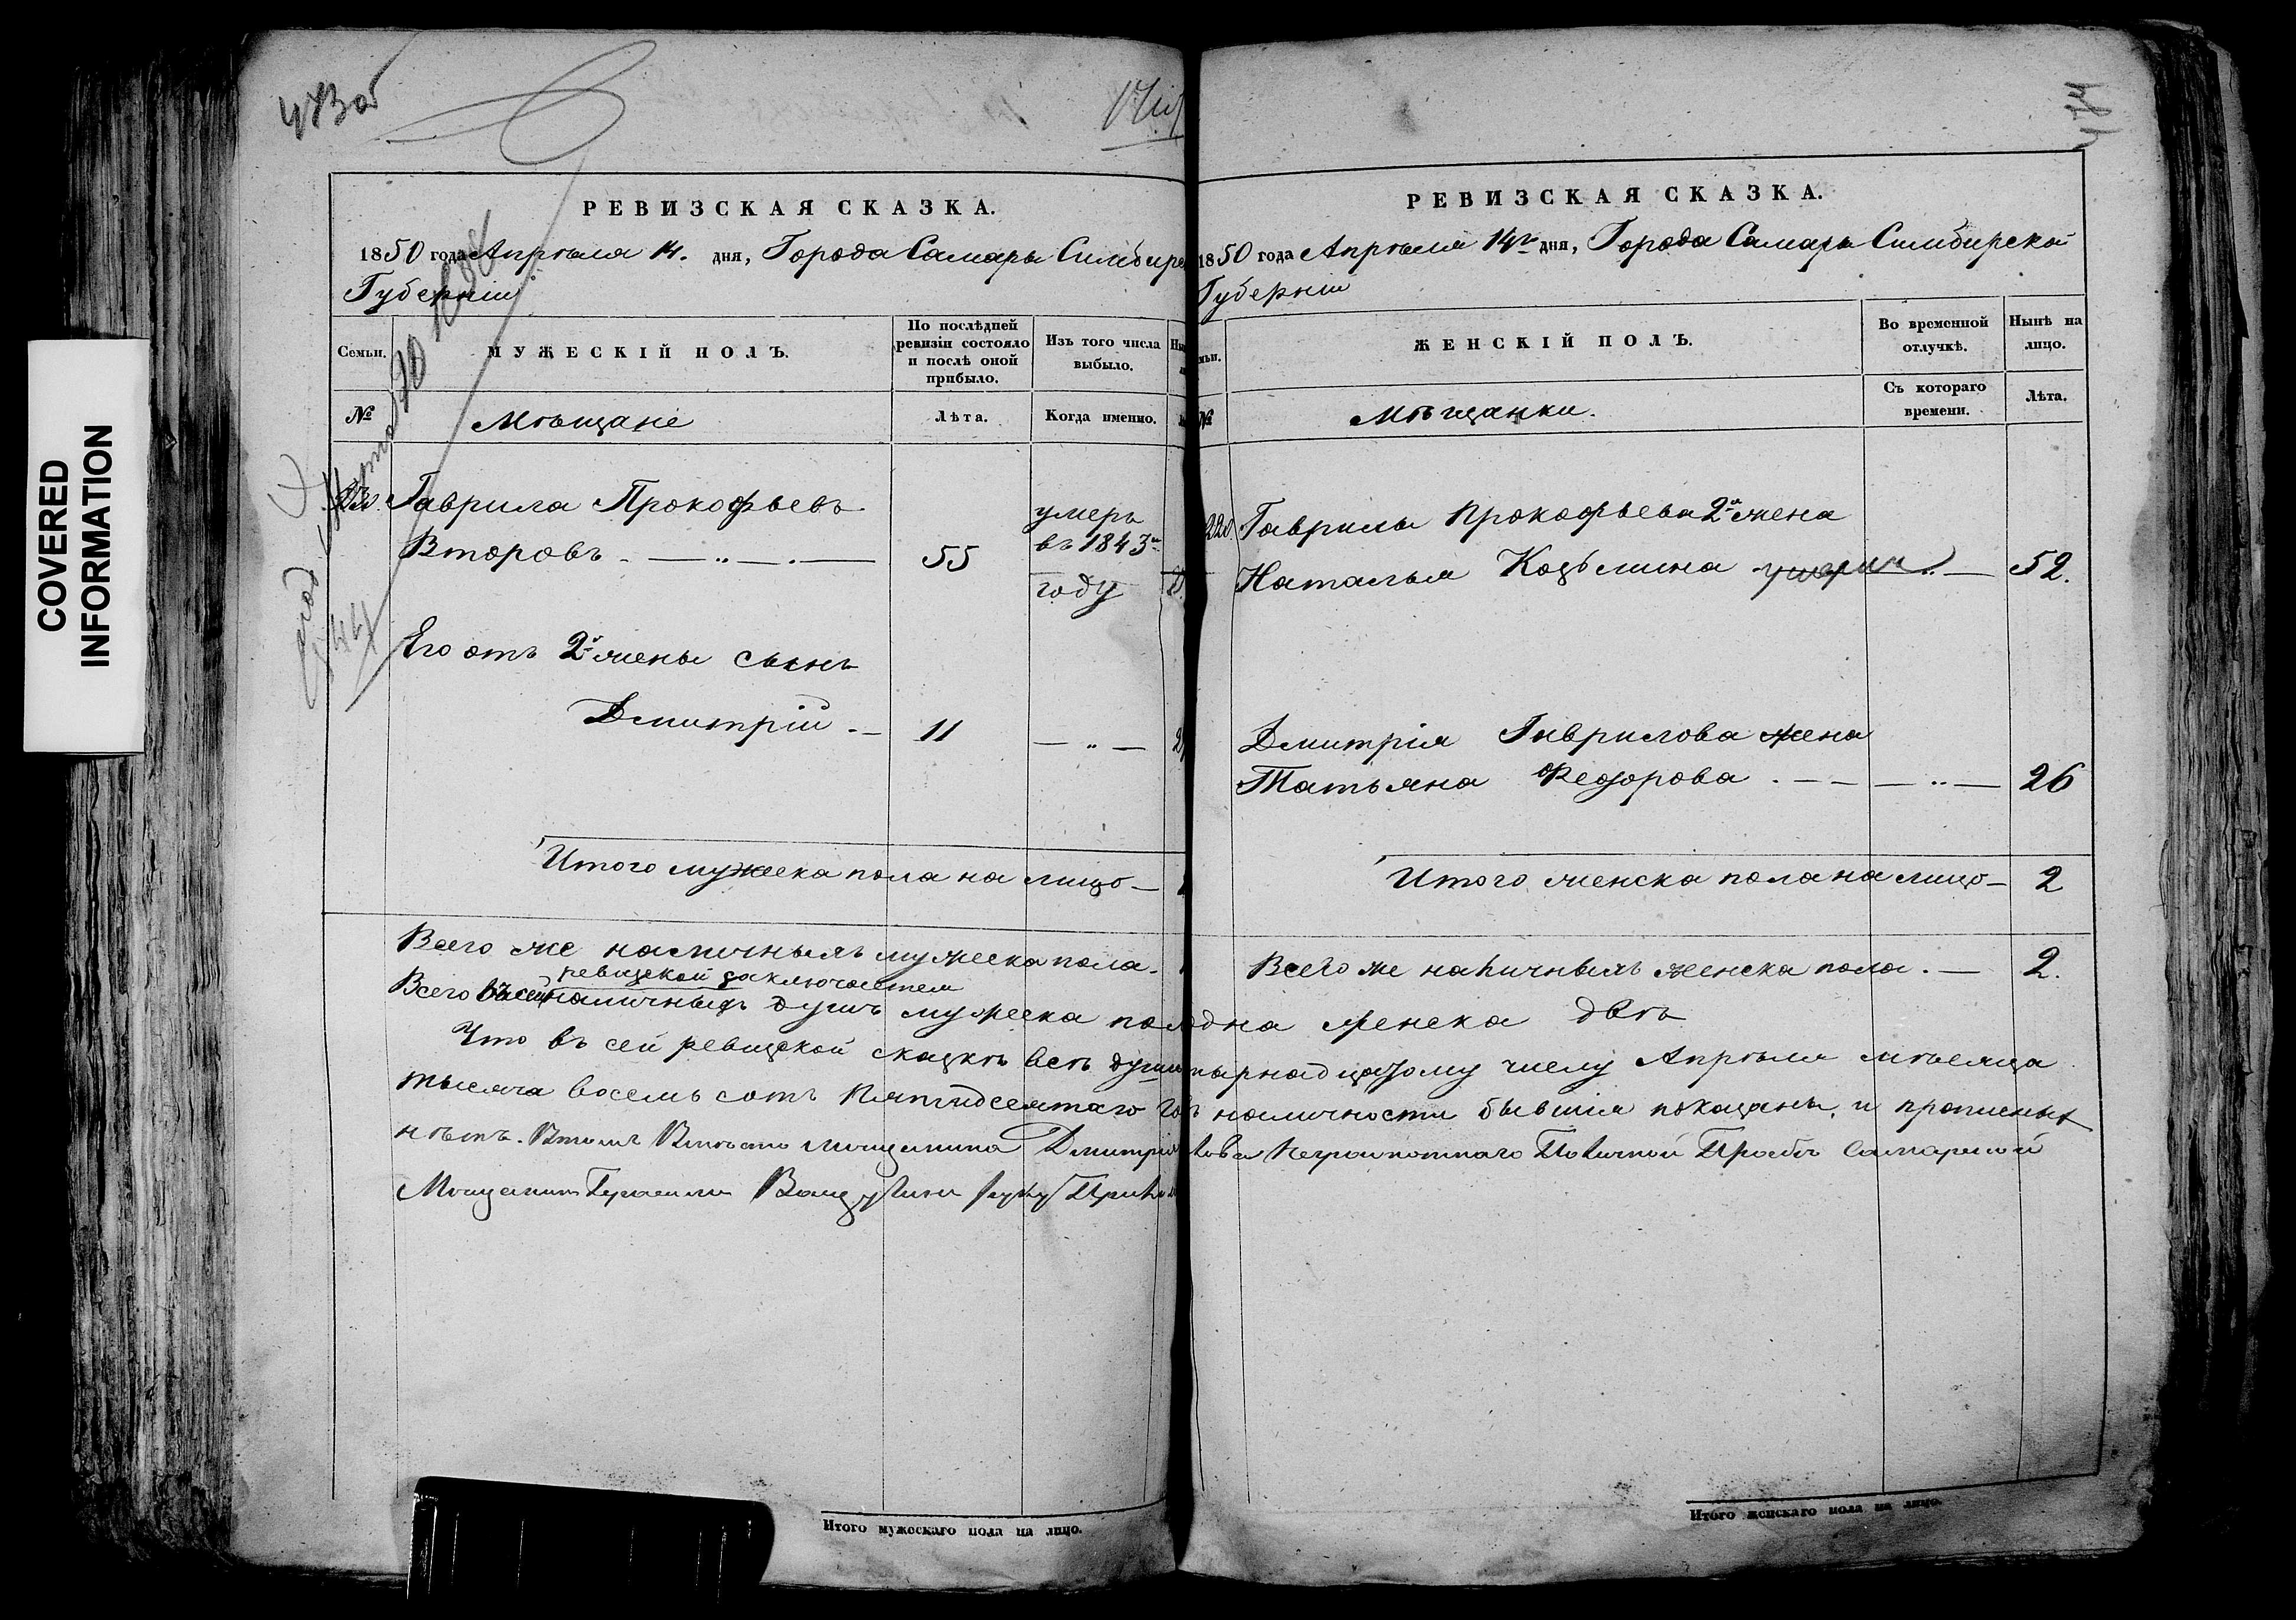 COVERED
INFORMATION
473 об
РЕВИЗСКАЯ СКАЗКА.
1850 года Апрѣля 14. дня, Города Самары Симбирс
Губернии
Семьи.
МУЖЕСКІЙ ПОЛЪ.
По послѣдней ревизіи состояло и послѣ оной прибыло.
Изъ того числа выбыло.
№
Мѣщане
Лѣта.
Когда именно.
Гаврила Прокофьевъ
Второвъ 55
умеръ
въ 1843
году
Его отъ 2й жены сынъ
Дмитрій 11
Итого мужеска пола на лицо
Всего же наличныхъ мужеска пола
ревизской заключается
Всего въ сей наличныхъ душъ мужеска пол
Что въ сей ревизской сказкѣ всѣ души
тысяча восемь сотъ пятидесятаго го
нѣтъ. Въ томъ вмѣсто мѣщанина Дмитрія
Мѣщанинъ Герасимъ руку Прило
Итого мужескаго пола на лицо.
474
РЕВИЗСКАЯ СКАЗКА.
1850 года Апрѣля 14го дня, Города Самары Симбирской
Губернии
ЖЕНСКІЙ ПОЛЪ.
Во временной отлучкѣ.
Нынѣ на лицо.
№
Мѣщанки.
Съ котораго времени.
Лѣта.
220. Гаврилы Прокофьева 2я жена
Наталья Козьмина 52.
Дмитрія Гаврилова жена
Татьяна Федорова 26
Итого женска пола на лицо 2
Всего же наличныхъ женска пола 2.
одна женска двѣ
тырнадцатому числу Апрѣля мѣсяца
наличности бывшія показаны, и прописныхъ
лова неграмотнаго По личной Прозьбѣ Самарской
Итого женскаго пола на лицо.